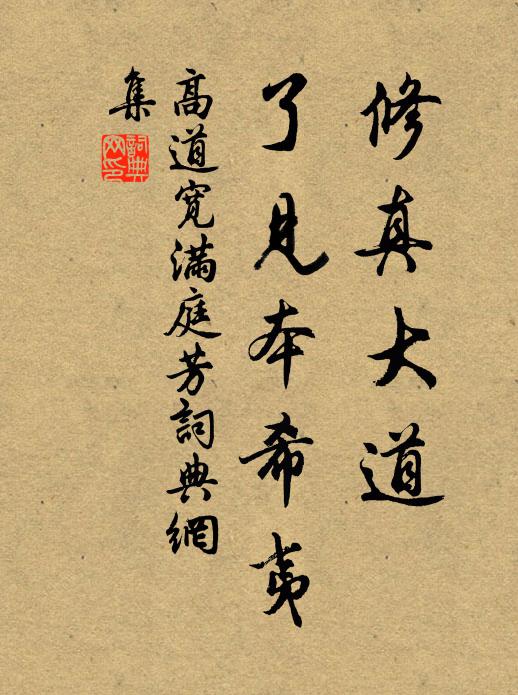 修真大道
了見本希夷
高道寬滿庭芳詞典網
集
詞典网印